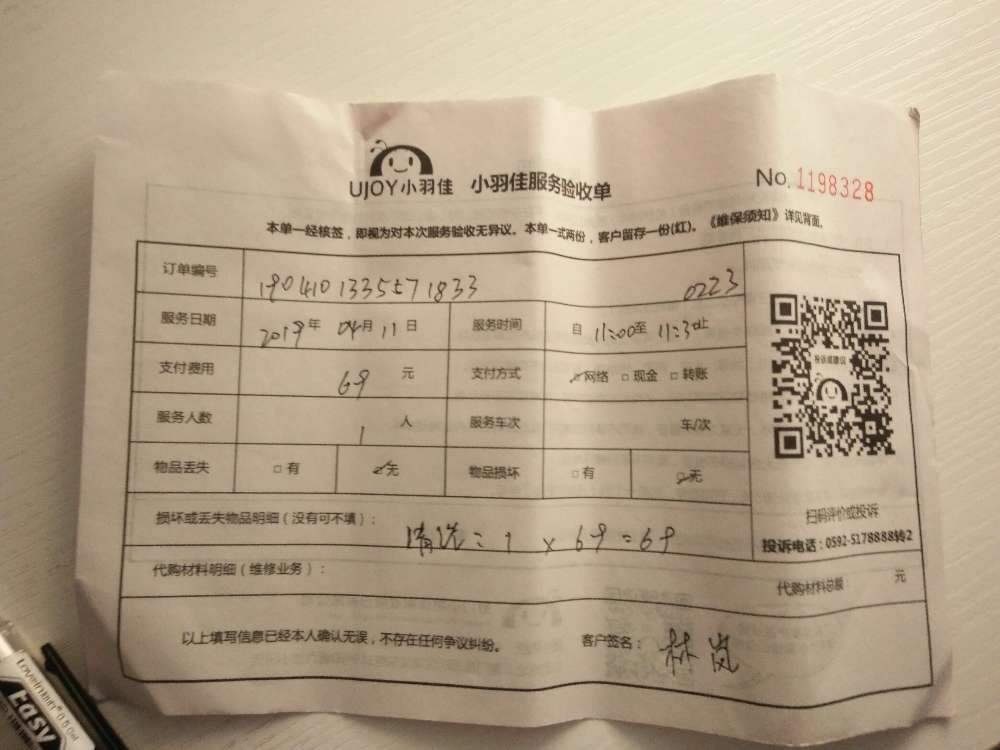 UJOY小羽佳 小羽佳服务验收单 No.1198328
本单一经核签，即视为对本次服务验收无异议。本单一式两份，客户留存一份(红)。《维保须知》详见背面。
订单编号 1904101335571833 0223
服务日期 2019年 04月 11日 服务时间 自 11:00至 11:30止
支付费用 69 元 支付方式 ☑网络 □现金 □转账
服务人数 1 人 服务车次 车/次
物品丢失 □有 ☑无 物品损坏 □有 ☑无
投诉或建议
扫码评价或投诉
投诉电话：0592-5178888转2
损坏或丢失物品明细（没有可不填）：
清洗：1 × 69 = 69
代购材料明细（维修业务）： 代购材料总额 元
以上填写信息已经本人确认无误，不存在任何争议纠纷。 客户签名： 林岚
Easy